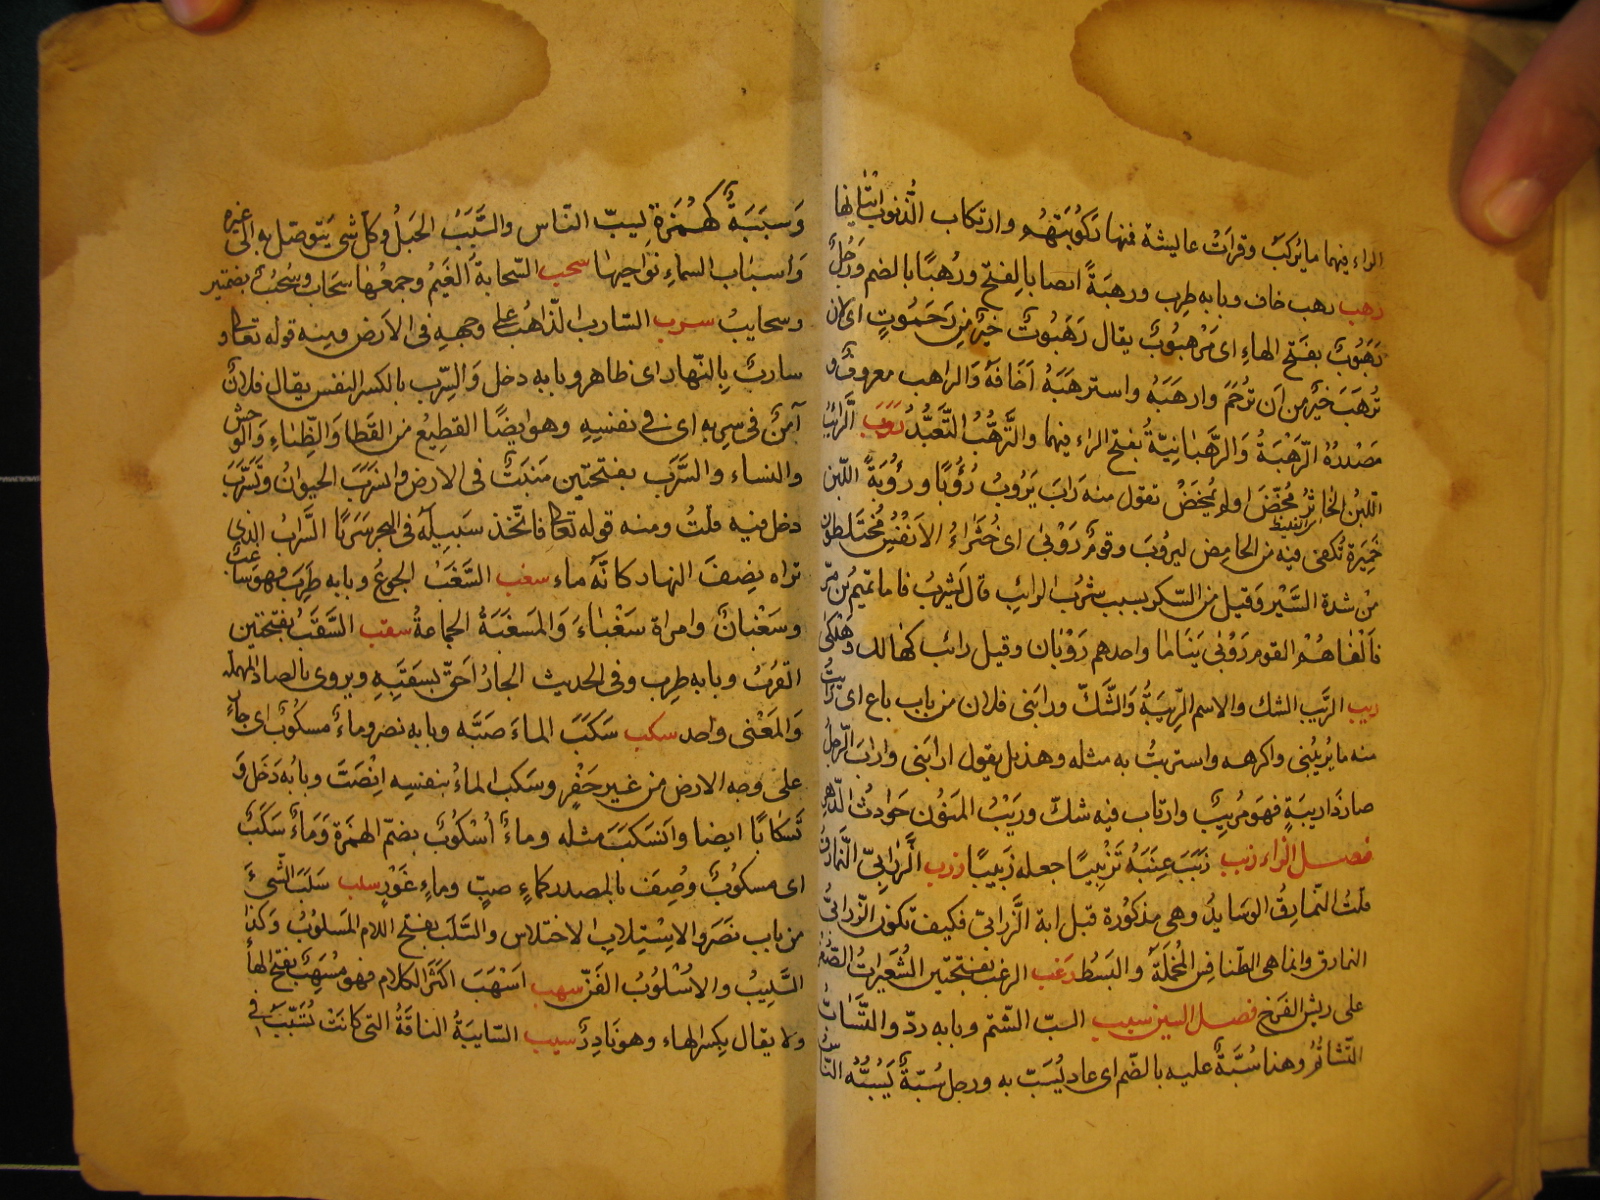 الراء فيهما ما يركب وقرات عايشة فمنها ركوبتهم وارتكاب الذنوب اتيانها
رهب رهب خاف وبابه طرب ورهبة ايضا بالفتح ورهبا بالضم ورجل
رهبوت بفتح الهاء اى مرهبوب يقال رهبوت خير من رحموت اى لان
ترهب خير من ان ترحم وارهبه واسترهبه اخافه والراهب معروف و
مصدره الرهبة والرهبانية بفتح الراء فيهما والترهب التعبد روب الرائب
اللبن الخاثر مخض او لم يمخض تقول منه راب يروب رؤبا وروبة اللبن
خميرة تلقى فيه من الحامض ليروب وقوم روبى اى خثراء الانفس مختلطون
من شدة السير وقيل من السكر بسبب شرب الرائب قال بشر فاما تميم بن مر
فالفاهم القوم روبى نياما واحدهم روبان وقيل رائب كهالك وهلكى
ريب الريب الشك والاسم الريبة والشك ورابنى فلان من باب باع اى رايت
منه ما يريبنى واكرهه واستربت به مثله وهذيل يقول ارابنى واراب الرجل
صار ذا ريبة فهو مريب وارتاب فيه شك وريب المنون حوادث الدهر
فصل الزاء زبب زبب عنبه تزبيبا جعله زبيبا زرب الزرابى النمارق
قلت النمارق الوسايد وهى مذكورة قبل اية الزرابى فكيف تكون الزرابى
النمارق وانما هى الطنافس المخملة والبسط زغب الزغب بفتحتين الشعيرات الصفر
على ريش الفرخ فصل السين سبب السب الشتم وبابه رد والتساب
التشاتم وهذا سبة عليه بالضم اى عار يسب به ورجل سبة يسبه الناس
وسببة كهمزة ليسب الناس والسبب الحبل وكل شى يتوصل به الى غيره
واسباب السماء نواحيها سحب السحابة الغيم وجمعها سحاب وسحب بضمتين
وسحايب سرب السارب الذاهب على وجهه فى الارض ومنه قوله تعالى و
سارب بالنهار اى ظاهر وبابه دخل والسرب بالكسر النفس يقال فلان
آمن فى سربه اى فى نفسه وهو ايضا القطيع من القطا والظباء والوحش
والنساء والسرب بفتحتين منبت فى الارض وانسرب الحيوان وتسرب
دخل فيه قلت ومنه قوله تعالى فاتخذ سبيله فى البحر سربا السراب الذى
تراه نصف النهار كانه ماء سغب السغب الجوع وبابه طرب فهو ساغب
وسغبان وامراة سغباء والمسغبة المجاعة سقب السقب بفتحتين
القرب وبابه طرب وفى الحديث الجار احق بسقبه ويروى بالصاد المهملة
والمعنى واحد سكب سكب الماء صبه وبابه نصر وماء مسكوب اى جار
على وجه الارض من غير حفر وسكب الماء بنفسه انصب وبابه دخل و
تسكابا ايضا وانسكب مثله وماء اسكوب بضم الهمزة وماء سكب
اى مسكوب وصف بالمصدر كماء صب وماء غور سلب سلب الشىء
من باب نصر والاستلاب الاختلاس والسلب بفتح اللام المسلوب وكذا
السليب والاسلوب الفن سهب اسهب اكثر الكلام فهو مسهب بفتح الهاء
ولا يقال بكسر الهاء وهو نادر سيب السايبة الناقة التى كانت تسيب فى